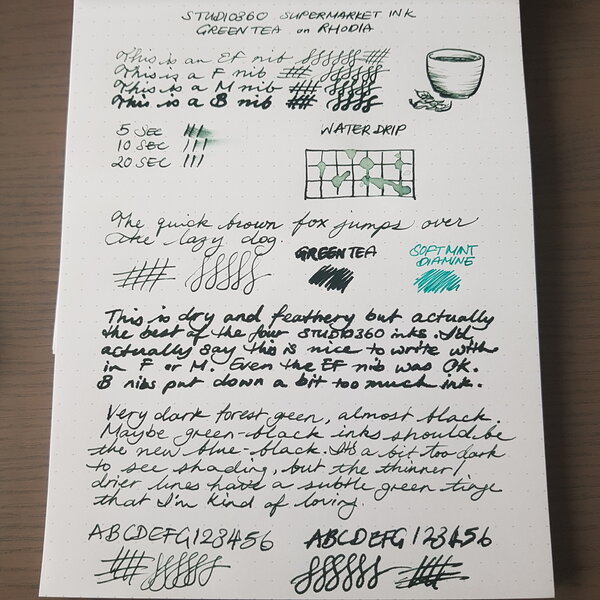 STUDIO360 SUPERMARKET INK
GREEN TEA on RHODIA
This is an EF nib
This is a F nib
This is a M nib
This is a B nib
5 SEC
10 SEC
20 SEC
WATER DRIP
The quick brown fox jumps over
the lazy dog.
GREEN TEA
SOFT MINT
DIAMINE
This is dry and feathery but actually
the best of the four STUDIO360 inks. I'd
actually say this is nice to write with
in F or M. Even the EF nib was OK.
B nibs put down a bit too much ink.
Very dark forest green, almost black.
Maybe green-black inks should be
the new blue-black. It's a bit too dark
to see shading, but the thinner/
drier lines have a subtle green tinge
that I'm kind of loving.
ABCDEFG123456
ABCDEFG123456